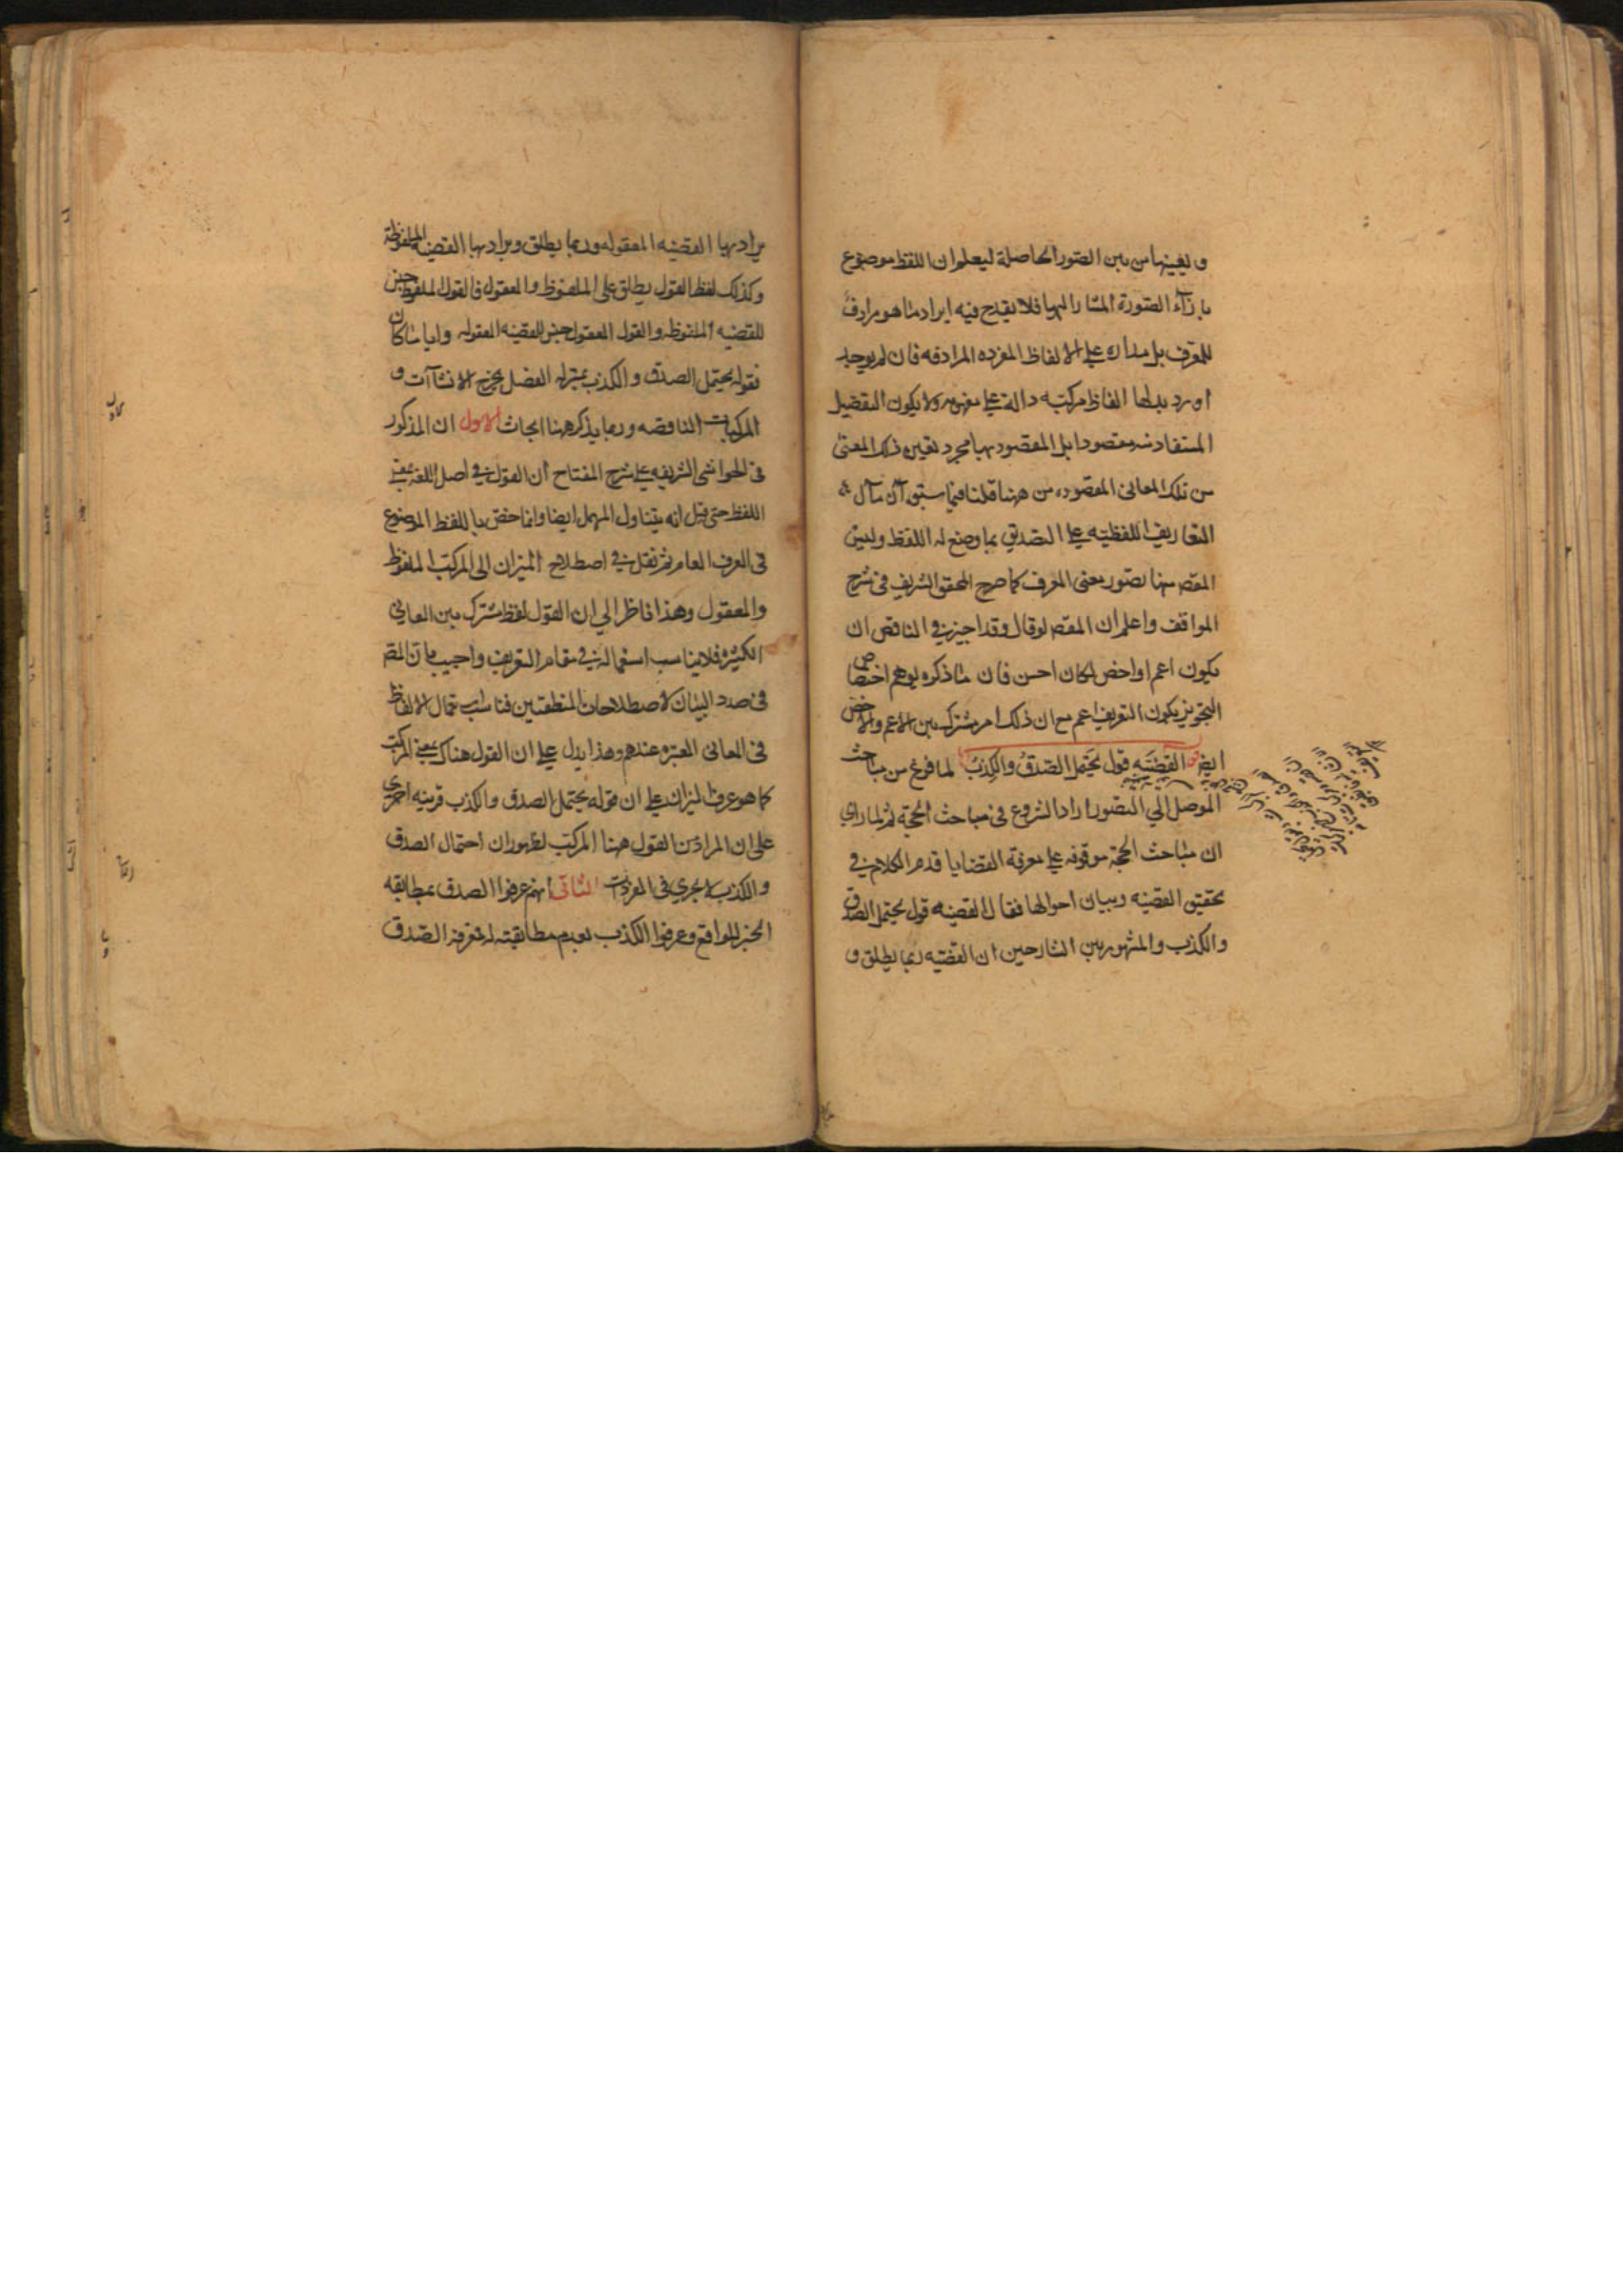 وتعينها من بين الصور الحاصلة ليعلم ان اللفظ موضوع
بازآء الصورة المشار اليها فلا يقدح فيه ايراد ما هو مرادف
للمعرف بل مداره على الالفاظ المفرده المرادفه فان لم يوجد
اورد بدلها الفاظ مركبته دالة على مفهومه ولا يكون التفصيل
المستفاد منه مقصودا بل المقصود بها مجرد تعين ذلك المعنى
من تلك المعانى المقصوده من ههنا قلنا فيما سبق ان مآل
التعاريف اللفظيته على التصديق بما وضع له اللفظ وليس
المقص منها تصور معنى المعرف كما صرح المحقق الشريف فى شرح
المواقف واعلم ان المقص لو قال وقد اجيز فى الناقص ان
يكون اعم او اخص لكان احسن فان ما ذكره يوهم اختصاص
التجويز بكون التعريف اعم مع ان ذلك امر مشترك بين الاعم والاخص
ايضا القضيّه قول يحتمل الصّدق والكذب لما فرغ من مباحث
الموصل الى التصور اراد الشروع فى مباحث الحجّة ثم لما راى
ان مباحث الحجّة موقوفه على معرفة القضايا قدم الكلام فى
تحقيق القضيّه وبيان احوالها فقال القضيه قول يحتمل الصدق
والكذب والمشهور بين الشارحين ان القضيّه ربما يطلق و
يراد بها القضيه المعقوله وربما يطلق ويراد بها القضيه الملفوظة
وكذلك لفظ القول يطلق على الملفوظ والمعقول فالقول الملفوظ جنس
للقضيه الملفوظه والقول المعقول جنس للقضيه المعقوله وايا ما كان
فقوله يحتمل الصدق والكذب بمنزله الفصل يخرج الانشاآت و
المركبات الناقصه وربما يذكر ههنا ابحاث الاول ان المذكور
فى الحواشى الشريفه على شرح المفتاح ان القول فى اصل اللغه بمعنى
اللفظ حتى قيل انه يتناول المهمل ايضا وانما خص باللفظ الموضوع
فى العرف العام ثم نقل فى اصطلاح الميزان الى المركب الملفوظ
والمعقول وهذا ناظر الى ان القول لفظ مشترك بين المعانى
الكثيره فلا يناسب استعماله فى مقام التعريف واجيب بان المقص
فى صدد البيان لاصطلاحات المنطقيين فناسب استعمال الالفاظ
فى المعانى المعتبره عندهم وهذا يدل على ان القول هناك بمعنى المركب
كما هو عرف الميزان على ان قوله يحتمل الصدق والكذب قرينه اخرى
على ان المراد من القول ههنا المركب لظهور ان احتمال الصدق
والكذب لا يجرى فى المفردات الثانى انهم عرفوا الصدق بمطابقه
الخبر للواقع وعرفوا الكذب بعدم مطابقته له فمعرفة الصّدق